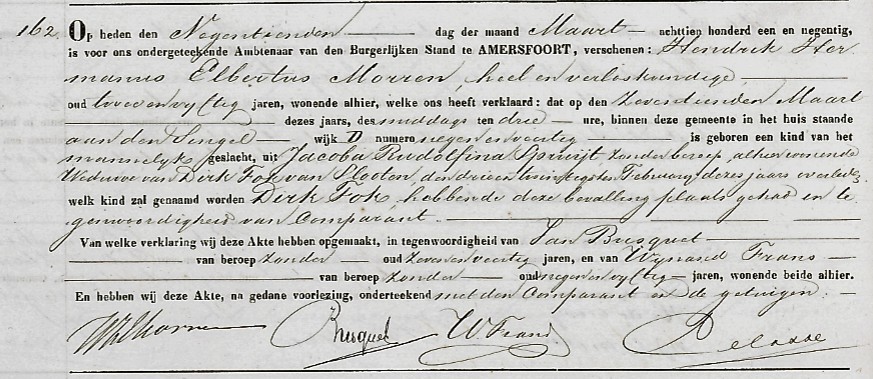 162. Op heden den Negentienden dag der maand Maart achttien honderd een en negentig,
is voor ons ondergeteekende Ambtenaar van den Burgerlijken Stand te AMERSFOORT, verschenen: Hendrik Her
manus Elbertus Morren, heel en verloskundige,
oud twee en vyftig jaren, wonende alhier, welke ons heeft verklaard: dat op den Zeventienden Maart
dezes jaars, des middags ten drie ure, binnen deze gemeente in het huis staande
aan den Singel wijk D numero negen en veertig is geboren een kind van het
mannelyk geslacht, uit Jacoba Rudolfina Spruijt zonder beroep, alhier wonende
Weduwe van Dirk Fok van Slooten, den drieen twintigsten February dezes jaars overleden
welk kind zal genaamd worden Dirk Fok, hebbende deze bevalling plaats gehad in te
genwoordigheid van Comparant.
Van welke verklaring wij deze Akte hebben opgemaakt, in tegenwoordigheid van Jan Busquet
van beroep zonder oud zeven en veertig jaren, en van Wynand Frans
van beroep zonder oud negen en vyftig jaren, wonende beide alhier.
En hebben wij deze Akte, na gedane voorlezing, onderteekend met den Comparant en de getuigen.
Morren Busquet W Frans